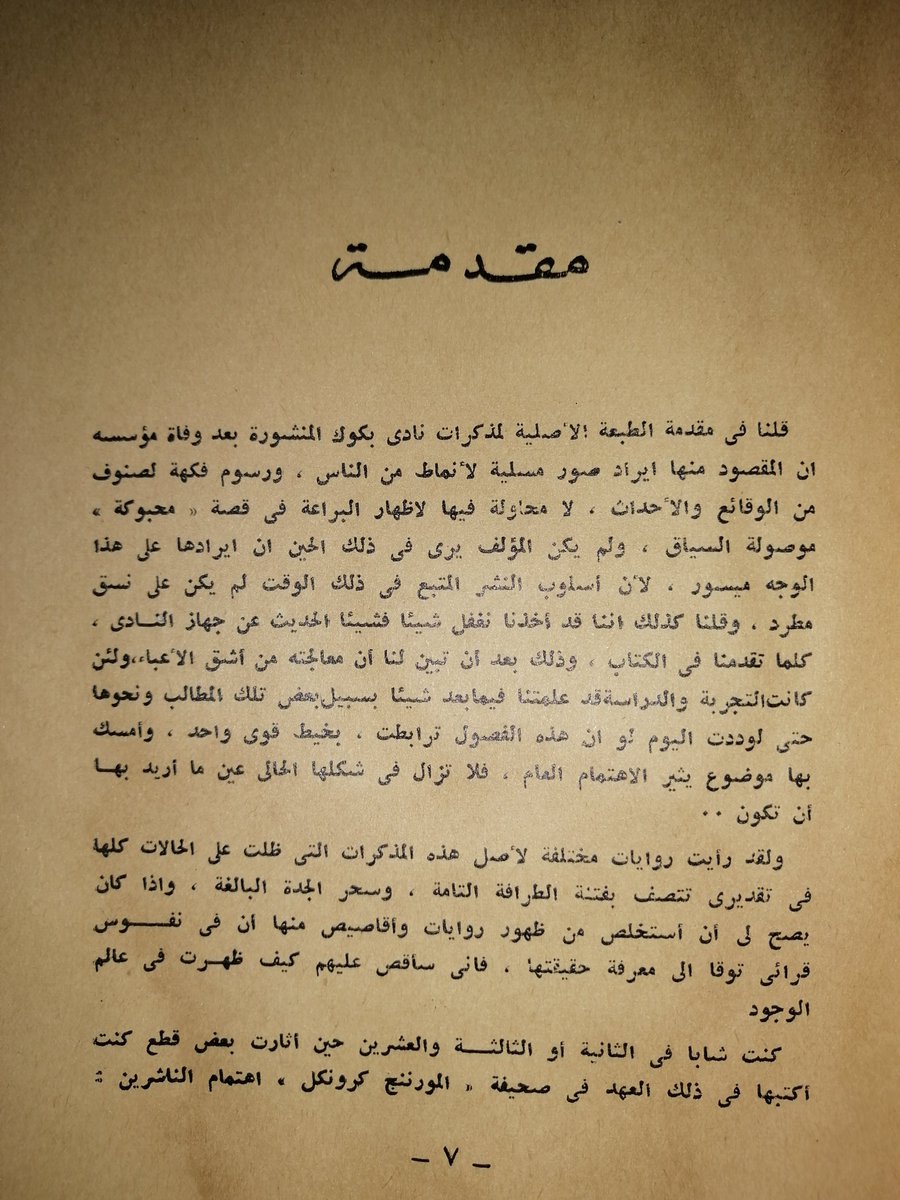 مقدمة
قلنا فى مقدمة الطبعة الأصلية لمذكرات نادى بكوك المنشورة بعد وفاة مؤسسه
ان المقصود منها ايراد صور مسلية لأنماط من الناس ، ورسوم فكهة لصنوف
من الوقائع والأحداث ، لا محاولة فيها لاظهار البراعة فى قصة « محبوكة »
موصولة السياق ، ولم يكن المؤلف يرى فى ذلك الحين ان ايرادها على هذا
الوجه ميسور ، لأن أسلوب النشر المتبع فى ذلك الوقت لم يكن على نسق
مطرد ، وقلنا كذلك اننا قد أخذنا نغفل شيئا فشيئا الحديث عن جهاز النـادى ،
كلما تقدمنا فى الكتاب ، وذلك بعد أن تبين لنا أن معالجته من أشق الأعباء،،ولئن
كانت التجربة والدراسة قد علمتنا فيما بعد شيئا بسبيل بعض تلك المطالب ونحوها
حتى لوددت اليوم لو ان هذه الفصول ترابطت ، بخيط قوى واحد ، وأمسك
بها موضوع يثير الاهتمام العام ، فلا تزال فى شكلها الحالى عين ما أريد بهـا
أن تكون ٠٠
ولقد رأيت روايات مختلفة لأصل هذه المذكرات التى ظلت على الحالات كلها
فى تقديرى تتصف بفتنة الطرافة التامة ، وسحر الجدة البالغة ، واذا كان
يصح لى أن أستخلص من ظهور روايات وأقاصيص منها أن فى نفــوس
قرائى توقا الى معرفة حقيقتها ، فانى سأقص عليهم كيف ظهـرت فى عالم
الوجود
كنت شابا فى الثانية أو الثالثـة والعشرين حين أثارت بعض قطع كنت
أكتبها فى ذلك العهد فى صحيفة « المورننج كرونكل » اهتمام الناشرين :
– ٧ –